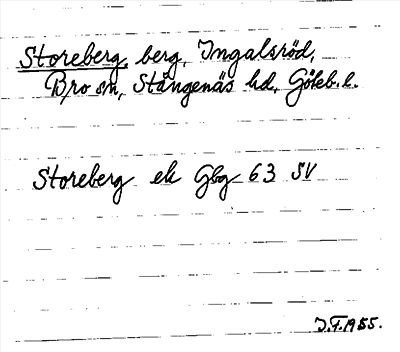 Storeberg, berg, Ingalsröd,
Bro sn, Stångenäs hd, Göteb. l.
Storeberg ek Gbg 63 SV
J.F. 1955.